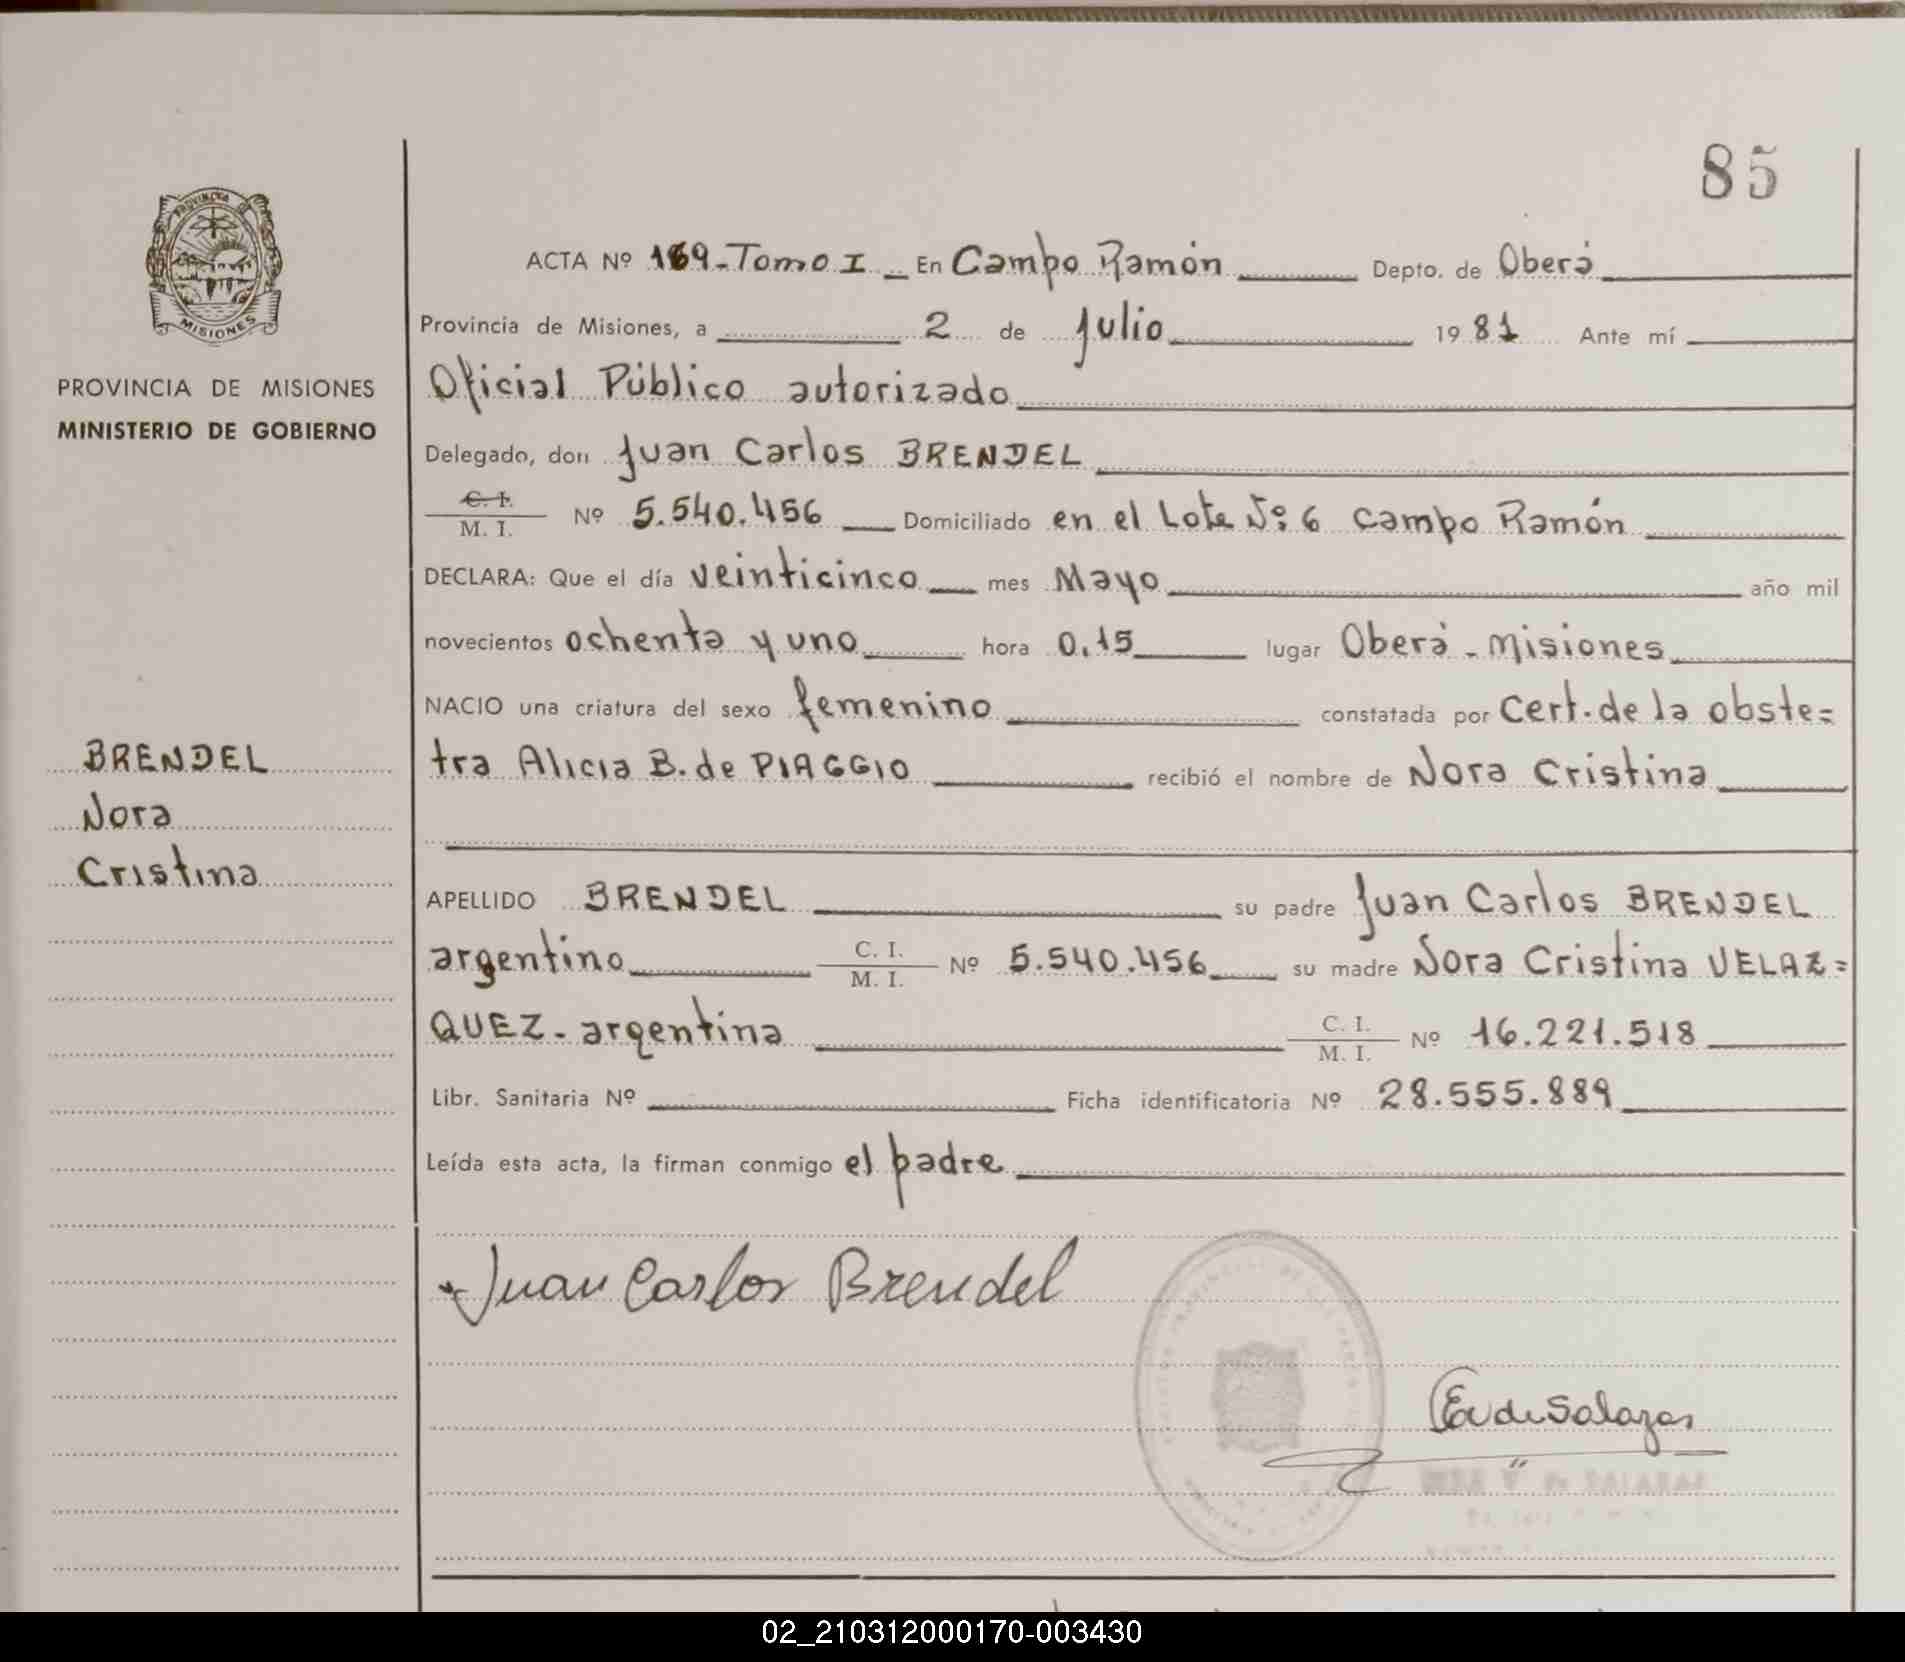 85
PROVINCIA DE
MISIONES
PROVINCIA DE MISIONES
MINISTERIO DE GOBIERNO
BRENDEL
Nora
Cristina
ACTA Nº 169-Tomo I _ En Campo Ramón Depto. de Oberá
Provincia de Misiones, a 2 de Julio 1981 Ante mí
Oficial Público autorizado
Delegado, don Juan Carlos BRENDEL
C. I.
M. I. Nº 5.540.456 Domiciliado en el Lote Nº 6 Campo Ramón
DECLARA: Que el día veinticinco mes Mayo año mil
novecientos ochenta y uno hora 0,15 lugar Oberá - Misiones
NACIO una criatura del sexo femenino constatada por Cert. de la obste=
tra Alicia B. de PIAGGIO recibió el nombre de Nora Cristina
APELLIDO BRENDEL su padre Juan Carlos BRENDEL
argentino C. I. M. I. Nº 5.540.456 su madre Nora Cristina VELAZ=
QUEZ - argentina C. I. M. I. Nº 16.221.518
Libr. Sanitaria Nº Ficha identificatoria Nº 28.555.889
Leída esta acta, la firman conmigo el padre
Juan Carlos Brendel
de Salazar
de SALAZAR
02_210312000170-003430